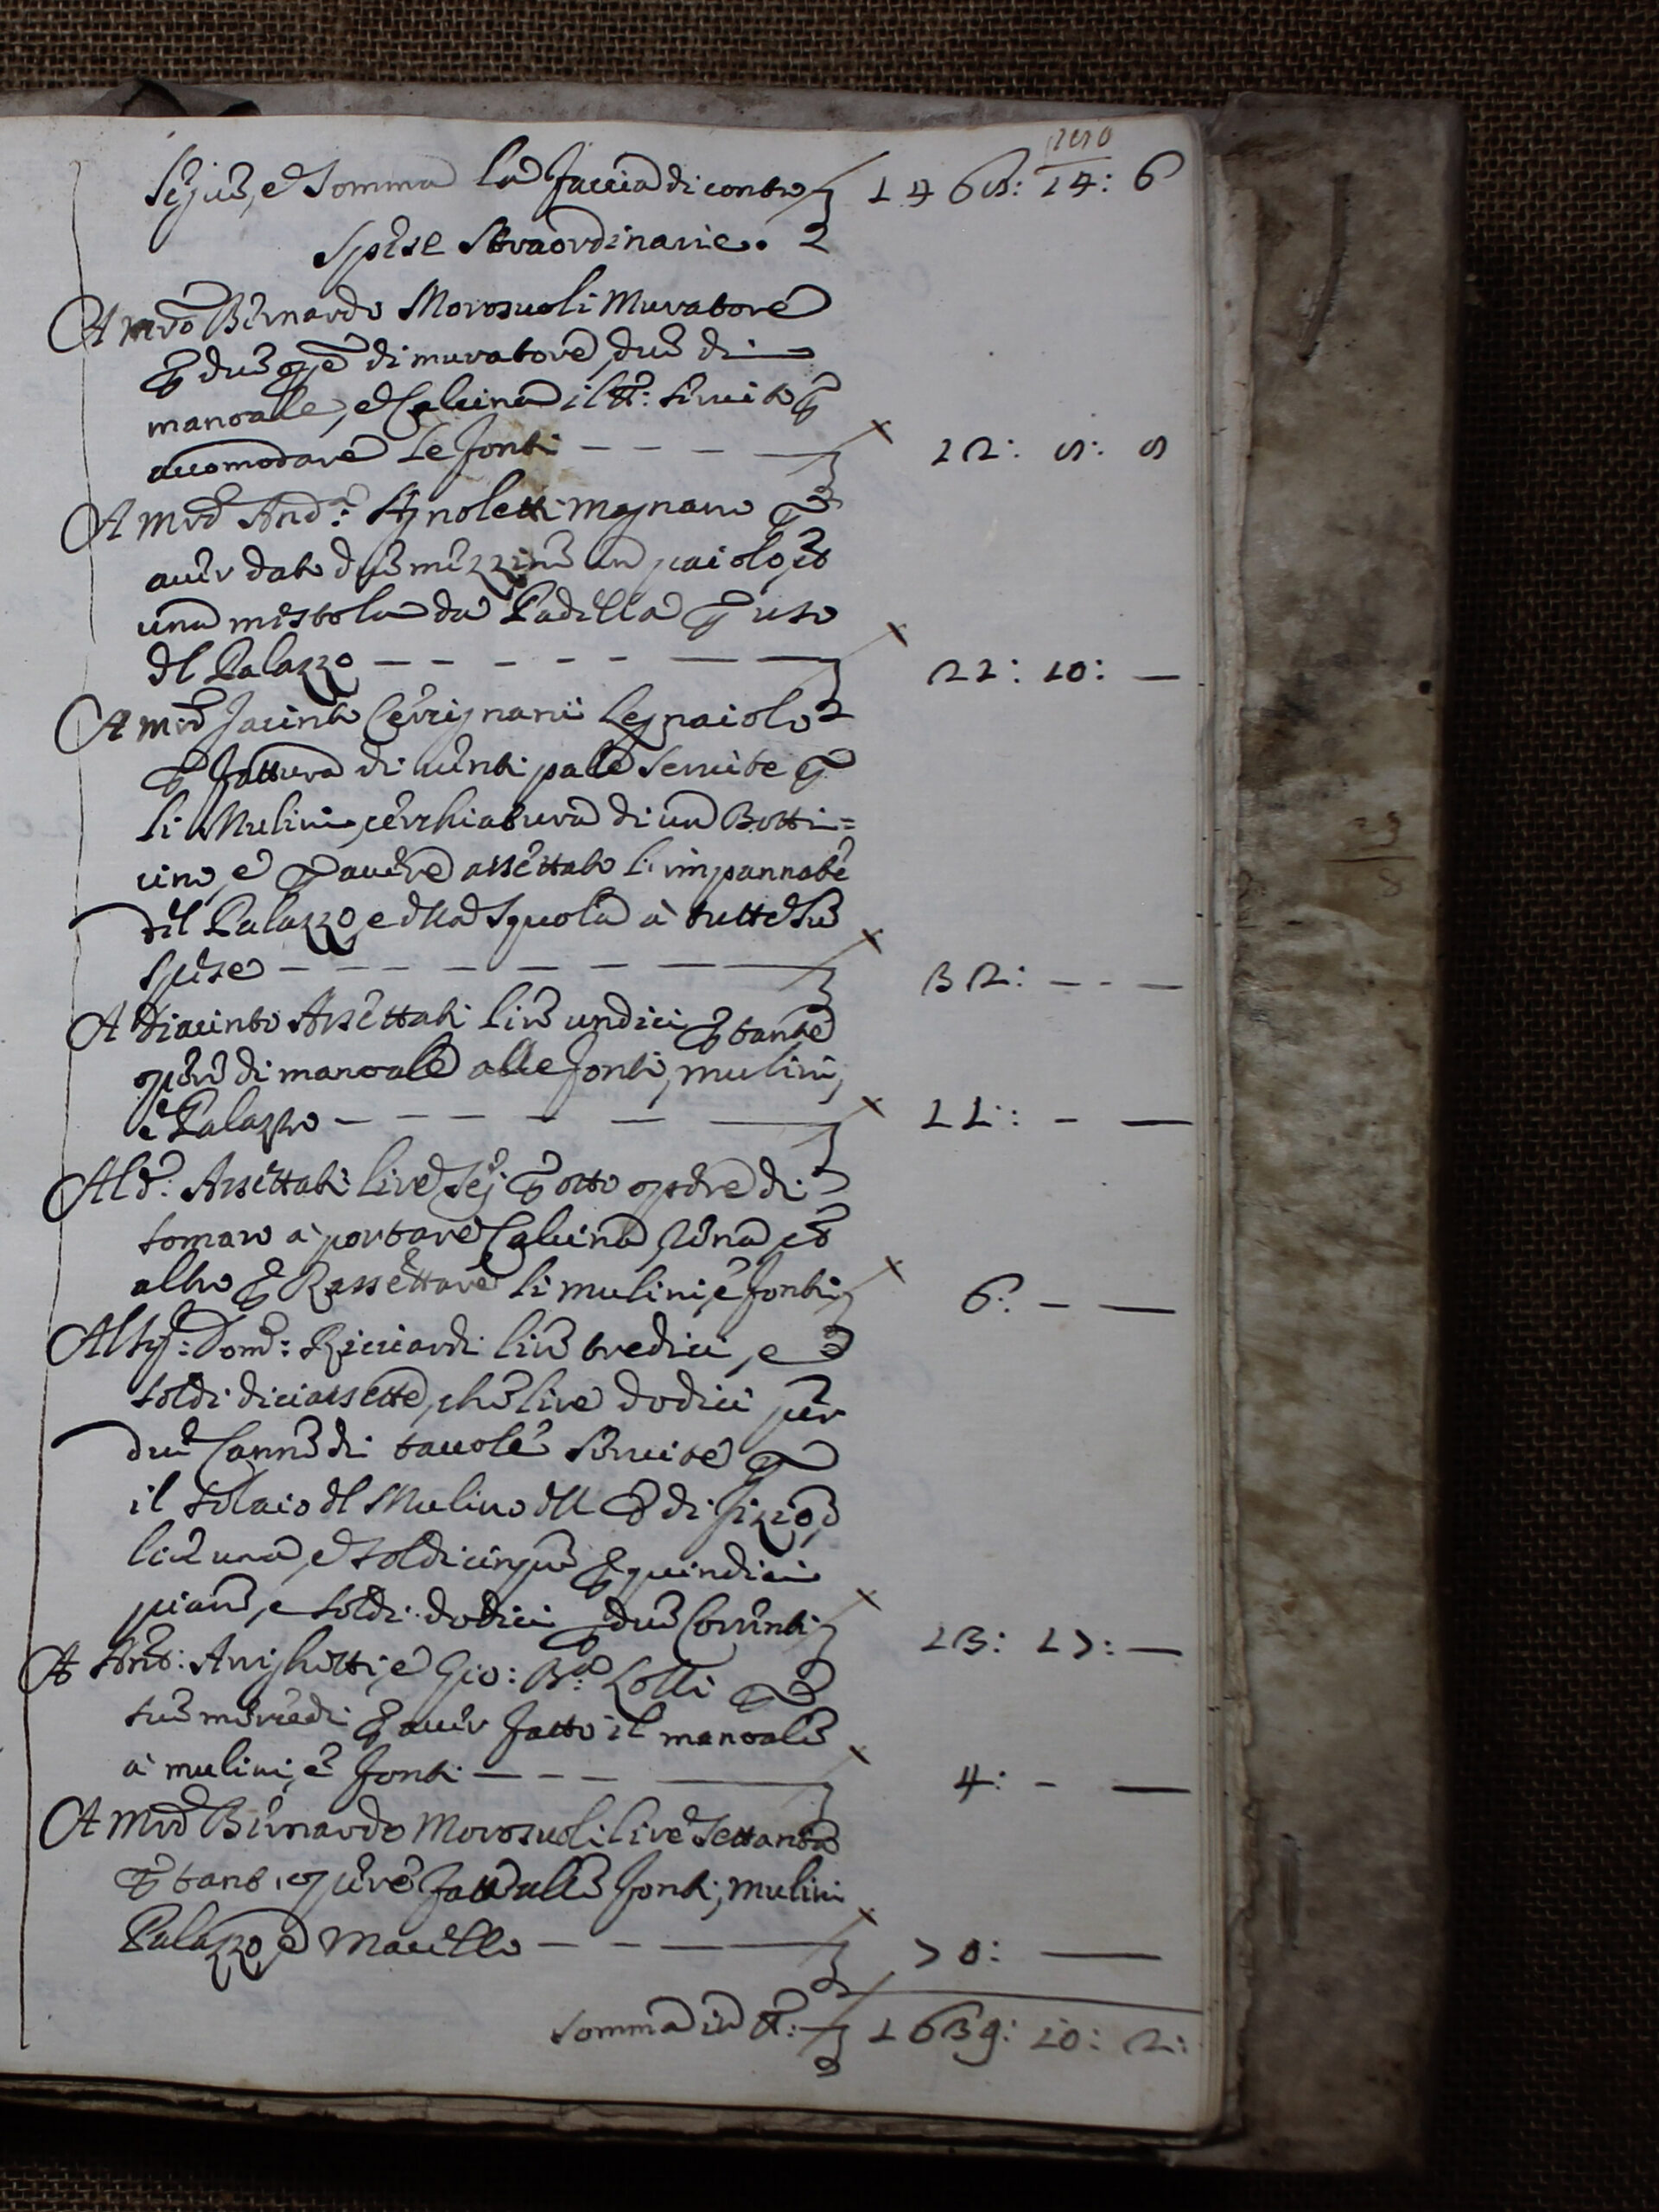 Segue, e Somma la faccia di contro 1468: 14: 6
Spese Straordinarie.
A mro Bernardo Morozuoli Muratore
p due op.e di muratore, due di
manoale, e Calcina il tt.o servito p
accomodare le fonti — — — — 12: 8: 8
A mro And.a Agnoletti magnano p
aver dato due mezzine un paiolo, et
una mestola da Padella p uso
del Palazzo — — — — — — — 21: 10: —
A mro Jacinto Cerrignani Legnaiolo
p fattura di venti pale servite p
li Mulini, cerchiatura di un Botti=
cino, e p avere assettato l'impannate
del Palazzo, e della Squola à tutte sue
spese — — — — — — — 32: — — —
A Diacinto Assettati lire undici p tante
opere di manoale alle fonti, mulini,
e Palazzo — — — — — — 11: — —
Al d.o Assettati lire sej p otto opere di
somaro a portare Calcina, Rena et
altro p Rassettare li mulini, e fonti 6: — —
Al Sig.r Dom.o Ricciardi lire tredici, e
soldi diciassette, che lire dodici per
due Canne di tavole servite p
il solaio del Mulino del di Pizzo,
lire una, e soldi cinque p quindici
piane, e soldi dodici p due Correnti 13: 17: —
A Ant.o Arrighetti, e Gio: B.a Lolli p
sue mercedi p aver fatto il manoale
a mulini, e fonti — — — — 4: — —
A Mro Bernardo Morozuoli lire settanta
p tante opere fatte alle fonti, mulini
Palazzo, e Macello — — — — 70: —
Somma in tt.o 1639: 10: 2: